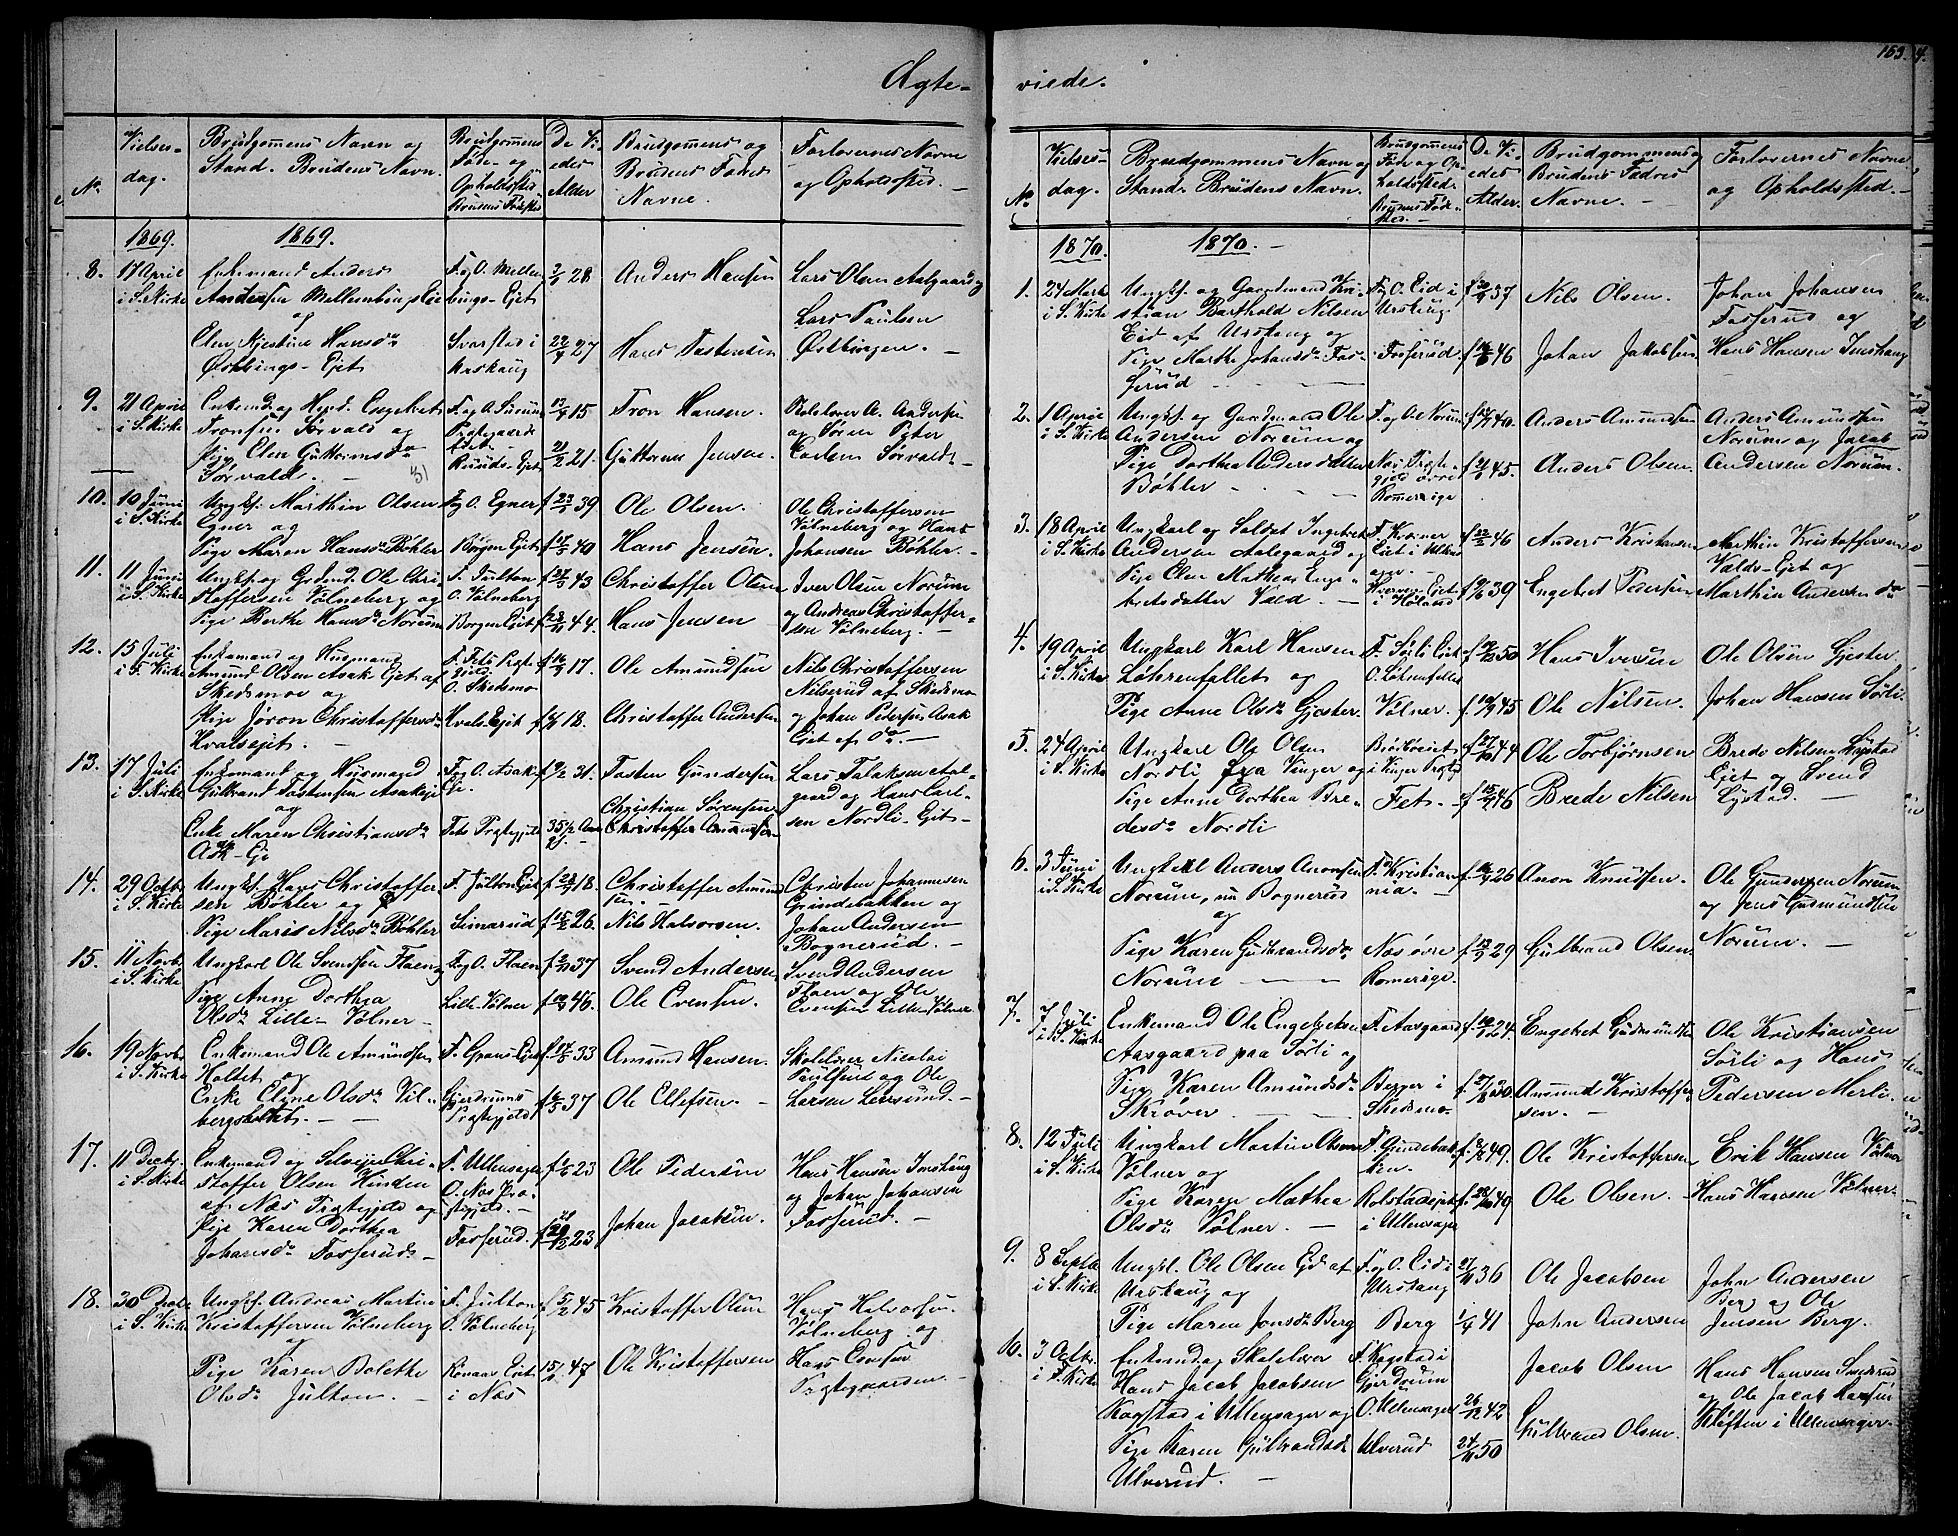 Ægte-
No.
Vielses-
dag.
Brudgommens Navn og
Stand. Brudens Navn.
Brudgommens
Føde- og
Opholdssted.
Brudens Fødested
De Vi-
edes
Alder
Brudgommens og
Brudens Faders
Navne.
Forlovernes Navne
og Opholdssted. -
1869. 1869.
8. 17 April
i S. Kirke
Enkemand Anders
Andersen Mellembingseie
og
Elen Kjestine Hansdr
Østbings-Ejet
F. og O. Mellem
bings-Ejet
Svarstad i
Urskoug
28
22/4 27
Anders Hansen
Hans Tostensen
Lars Olsen Aalgaard og
Lars Paulsen
Østbingen. -
9. 21 April
i S. Kirke
Enkemd. og Hmd. Engebret
Tronsen Sørvald og
Pige Elen Guttormsdr
Sørvald. -
F. og O.
Prgtgaards
Eiet
Ruuds-Ejet
15
21/2 21.
Tron Hansen.
Guttorm Jensen.
Skolelærer A. Andersen
og Søren Peter
Carlsen Sørvald -
10. 10 Juni
i S. Kirke
Ungk. Marthin Olsen
Egner og
Pige Maren Hansdr Bøhler
F. og O. Egner
Børgen Ejet
f 23/1 39
f 40
Ole Olsen.
Hans Jensen.
Ole Christoffersen
Vølneberg og Hans
Johansen Bøhler. -
11. 11 Juni
i S. Kirke
Ungk. og Grdmd. Ole Chri-
stoffersen Vølneberg og
Pige Berthe Hansdr Norum
F. Julton
O. Vølneberg
Børgen Ejet
f 27/3 43
f 44.
Christoffer Olsen
Hans Jensen
Iver Olsen Norum
og Andreas Christoffer-
sen Vølneberg. -
12. 15 Juli
i F. Kirke
Enkemand og Husmand
Amund Olsen Asak Ejet af
Skedsmoe og
Pige Jøron Christoffersdr
Hvalsejet. -
F. Fets Prgt-
gjeld
O. Skedsmo
Hvals-Ejet
f 17.
f 18.
Ole Amundsen
Christoffer Andersen
Nils Christoffersen
Nilserud af Skedsmo
og Johan Pedersen Asak
Ejet af do -
13. 17 Juli
i S. Kirke
Enkemand og Husmand
Gulbrand Tostensen Asakeje
og
Enke Maren Christiansdr
Asak-Eje
F. og O. Asak-
Ei.
Fets Prgtgjeld
f 9/2 31.
35 1/2 Aar
Tosten Gundersen
Christian Sørensen
Christoffer Amundsen
Lars Falaksen Aal-
gaard og Hans Carl-
sen Nordli-Ejet -
14. 29 Octbr
i S. Kirke
Ungk. Hans Christoffer
sen Bøhler og
Pige Maris Nilsdr Bøhler
F. Julton Ejet
Simarud
f 18.
f 26.
Christoffer Amund
sen. -
Nils Halvorsen.
Christen Johannesen
Grindebakken og
Johan Andersen
Bognerud. -
15. 11 Novb.
i S. Kirke
Ungkarl Ole Svendsen Flaen og
Pige Anne Dorthea
Olsdr Lille-Vølner -
F. og O. Flaen
Lille-Vølner
f 37
f 46.
Svend Andersen
Ole Evensen.
Svend Andersen
Flaen og Ole
Evensen Lille Vølner
16. 19 Novbr
i S. Kirke
Enkemand Ole Amundsen
Holtet og
Enke Eline Olsdr Vil-
bergsholtet. - -
Gjerdrums
Prgtgjeld
f 33
f 37
Amund Hansen
Ole Ellefsen. -
Skolelærer Nicolai
Paulsen og Ole
Larsen Leersund. -
17. 11 Decbr.
i S. Kirke
Enkemand og Selveier Chri-
stoffer Olsen Hinden
af Næs Prgtgjeld og
Pige Karen Dorthea
Johansdr Fosserud. -
F. Ullensager
O. Næs Præ-
stegjeld. -
Fosserud.
f 23
f 23
Ole Pedersen
Johan Jacobsen.
Hans Hansen Imshaug
og Johan Johansen
Fosserud. -
18. 30 Decbr
i S. Kirke
Ungk. Andreas Martin
Kristoffersen Vølneberg
og
Pige Karen Bolette
Olsdr Julton. -
F. Julton
O. Vølneberg
i Næs
f 5/2 45
47
Kristoffer Olsen
Ole Kristoffersen
Hans Halvorsen
Vølneberg og
Hans Evensen
Prgtegaarden. -
viede.
163.
No.
Vielses-
dag.
Brudgommens Navn og
Stand. Brudens Navn.
Brudgommens
Føde og Op-
holdssted.
Brudens Føde-
sted. -
De Vi-
edes
Alder.
Brudgommens og
Brudens Fadres
Navne. -
Forlovernes Navne
og Opholdssted. -
1870. 1870. -
1. 24 Marts
i S. Kirke
Ungk. og Gaardmand Kri-
stian Barthold Nilsen
Eid af Urskoug og
Pige Marthe Johansdr Fos-
serud
F. og O. Eid i
Urskoug
Fosserud
f 37
f 46
Nils Olsen.
Johan Jakobsen
Johan Johansen
Fosserud og
Hans Hansen Imshaug
2. 1 April
i S. Kirke
Ungk. og Gaardmand Ole
Andersen Norum og
Pige Dorthea Andersdatter
Bøhler - -
F. og O. Norum
Næs Prgte-
gjeld øvre
Romerige
f 40.
f 45.
Anders Amundsen
Anders Olsen
Anders Amundsen
Norum og Jacob
Andersen Norum.
3. 18 April
i S. Kirke
Ungkarl og Soldat Ingebret
Andersen Aalegaard og
Pige Elen Mathea Enge-
bretsdatter Vald -
i Høland
f 22/2 46
f 39
Anders Kristiansen
Engebret Pedersen
Marthin Kristoffersen
Valds-Ejet og
Marthin Andersen do
4. 19 April
i S. Kirke
Ungkarl Karl Hansen
Løkenfallet og
Pige Anne Olsdr Gjester
F. Sørli Ejet
O. Løkenfallet
Vølner.
f 50
f. 45
Hans Iversen
Ole Nilsen.
Ole Olsen Gjester
Johan Hansen Sørli.
5. 24 April
i S. Kirke
Ungkarl Ole Olsen
Nordli fra Vinger og
Pige Anne Dorthea Bre-
desdr Nordli
i Vinger Prgtgj
Fet -
f 44
f 46
Ole Torbjørnsen
Brede Nilsen
Brede Nilsen Lystad
Ejet og Svend
Lystad. -
6. 3 Juni
i S. Kirke
Ungkarl Anders Aronsen
Norum, nu Bognerud
og
Pige Karen Gulbrandsdr
Norum -
F. Kristian
nia. -
Næs øvre
Romerige.
f 26
f 29
Aron Knudsen.
Gulbrand Olsen.
Ole Gundersen Norum
og Jens Gudmundsen
Norum. -
7. 7 Juli
i S. Kirke
Enkemand Ole Engebretsen
Aasgaard paa Sørli og
Pige Karen Amundsdr
Skrøver -
F. Aasgaard
Berger i
Skedsmo.
f 24.
f. 30.
Engebret Gudmundsen
Amund Kristoffer-
sen. -
Ole Kristiansen
Sørli og Hans
Pedersen Merli.
8. 12 Juli
i S. Kirke
Ungkarl Martin Olsen
Vølner og
Pige Karen Mathea
Olsdr Vølner. -
F. Grindebak
ken.
i Ullensager
f 49.
f. 49
Ole Kristoffersen
Ole Olsen.
Erik Hansen Vølner
Hans Hansen Vølner -
9. 8 Septbr
i S. Kirke
Ungk. Ole Olsen Eid af
Urskoug og
Pige Maren Jonsdr Berg
F. og O. Eid i
Urskoug
Berg
36
1/4 41
Ole Jacobsen
John Andersen
John Andersen
Berg og Ole
Jensen Berg.
10. 3 Octbr.
i F. Kirke
Enkemd. og Skolelærer
Hans Jacob Jacobsen
Kogstad i Ullensager og
Pige Karen Gulbrandsdr
Ulverud. -
F. Kogstad i
Gjerdrum
O. Ullensager
Ulverud
26/12 42
50
Jacob Olsen
Gulbrand Olsen.
Hans Hansen
og Ole Jacob Hansen
Kløften i Ullensager. -